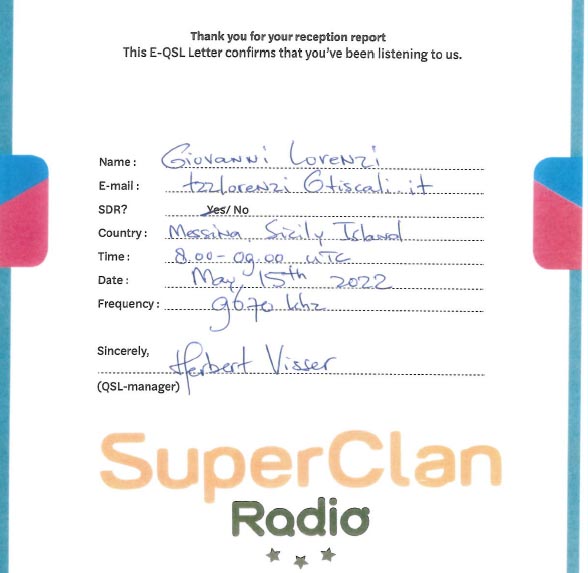 Thank you for your reception report
This E-QSL Letter confirms that you've been listening to us.
Name: Giovanni Lorenzi
E-mail: tzzlorenzi @tiscali.it
SDR? Yes/ No
Country: Messina, Sicily Island
Time: 8.00-09.00 UTC
Date: May, 15th 2022
Frequency: 9670 khz
Sincerely, Herbert Visser
(QSL-manager)
SuperClan
Radio